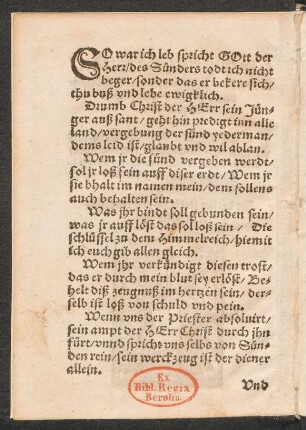 SO war ich leb spricht GOtt der
Herr/des Sünders todt ich nicht
beger/sonder das er bekere sich/
thu buß vnd lebe ewigklich.
Drumb Christ der HErr sein Jün-
ger auß sant/geht hin predigt inn alle
land/vergebung der sünd yederman/
dems leid ist/glaubt vnd wil ablan.
Wem jr die sünd vergeben werdt/
sol jr loß sein auff diser erdt/Wem jr
sie bhalt im namen mein/dem sollens
auch behalten sein.
Was jhr bindt soll gebunden sein/
was jr aufflöst das sol loß sein/ Die
schlüssel zu dem Himmelreich/hiemit
ich euch gib allen gleich.
Wem jhr verkündigt diesen trost/
das er durch mein blut sey erlöst/Be-
helt diß zeugnuß im hertzen sein/der-
selb ist loß von schuld vnd pein.
Wenn vns der Priester absoluirt/
sein ampt der HErr Christ durch jhn
fürt/vnnd spricht vns selbs von Sün-
den rein/sein werckzeug ist der diener
allein.
Vnd
Ex
Bibl. Regia
Berolin.